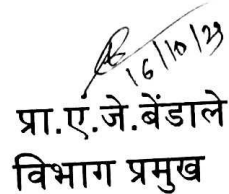 16/10/23
प्रा.ए.जे.बेंडाले
विभाग प्रमुख